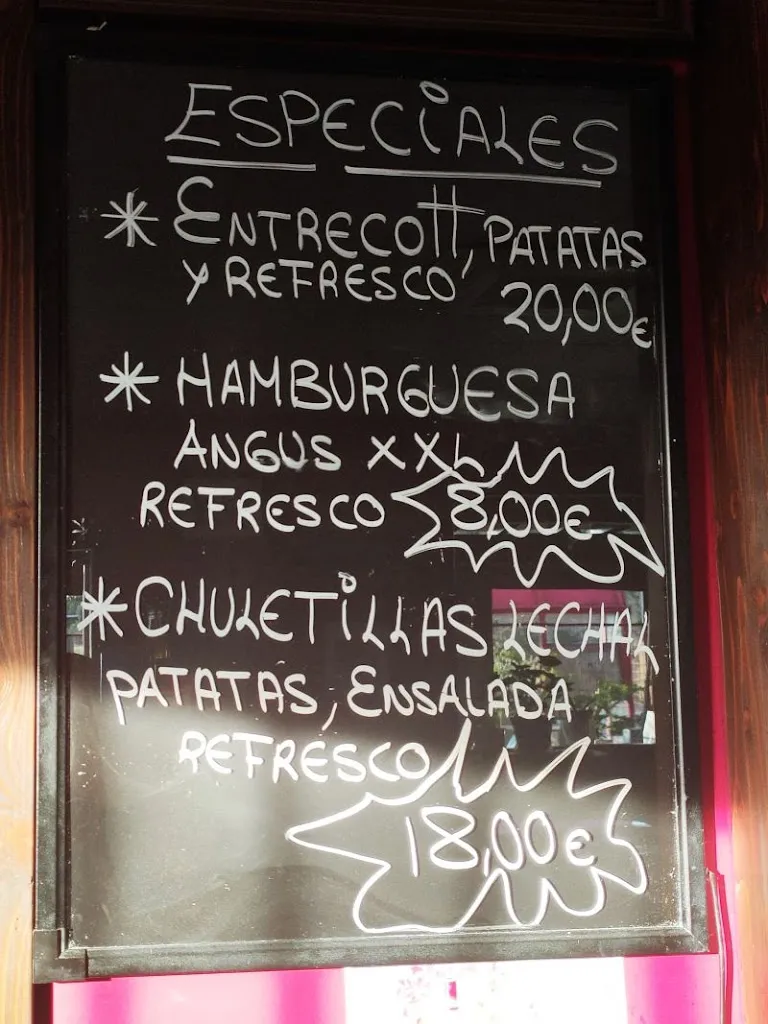 ESPECIALES
* ENTRECOTT, PATATAS
Y REFRESCO 20,00€
* HAMBURGUESA
ANGUS XXL
REFRESCO 8,00€
* CHULETILLAS LECHAL
PATATAS, ENSALADA
REFRESCO
18,00€